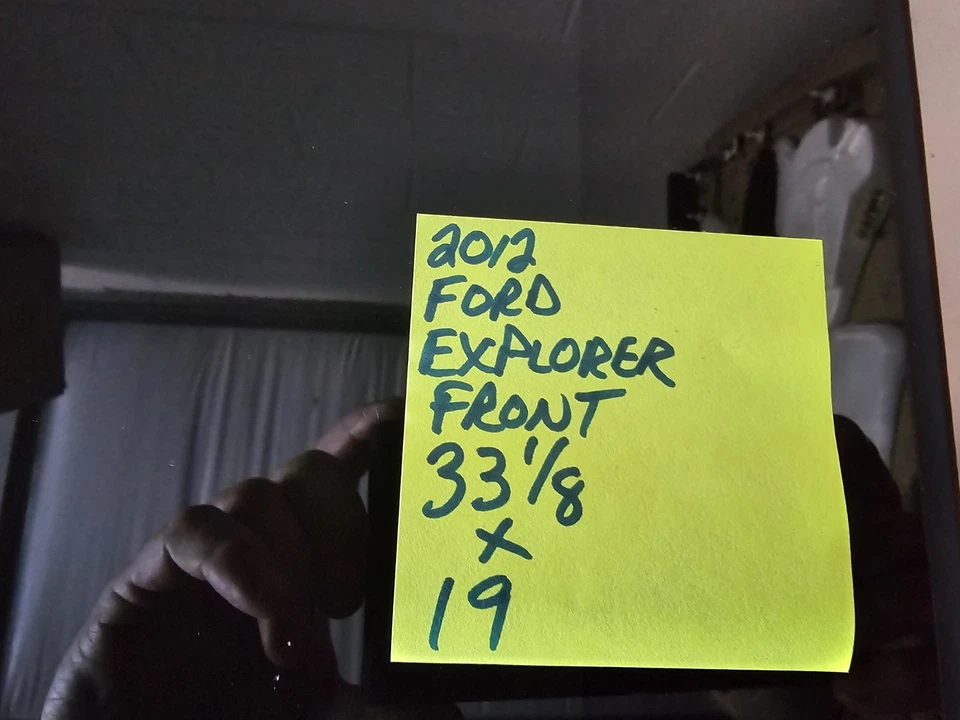 2012
FORD
EXPLORER
FRONT
33 1/8
x
19